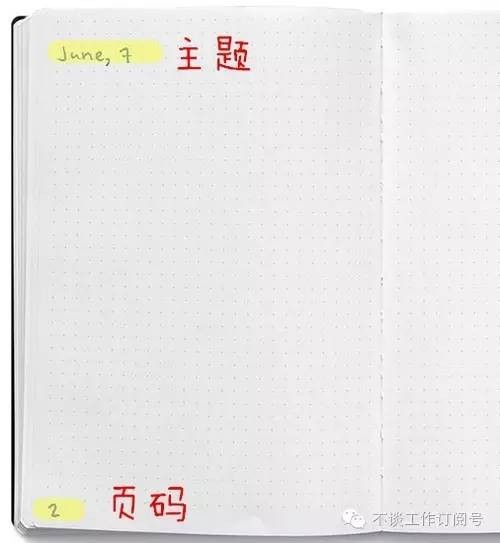 June, 7 主题
2 页码
不谈工作订阅号